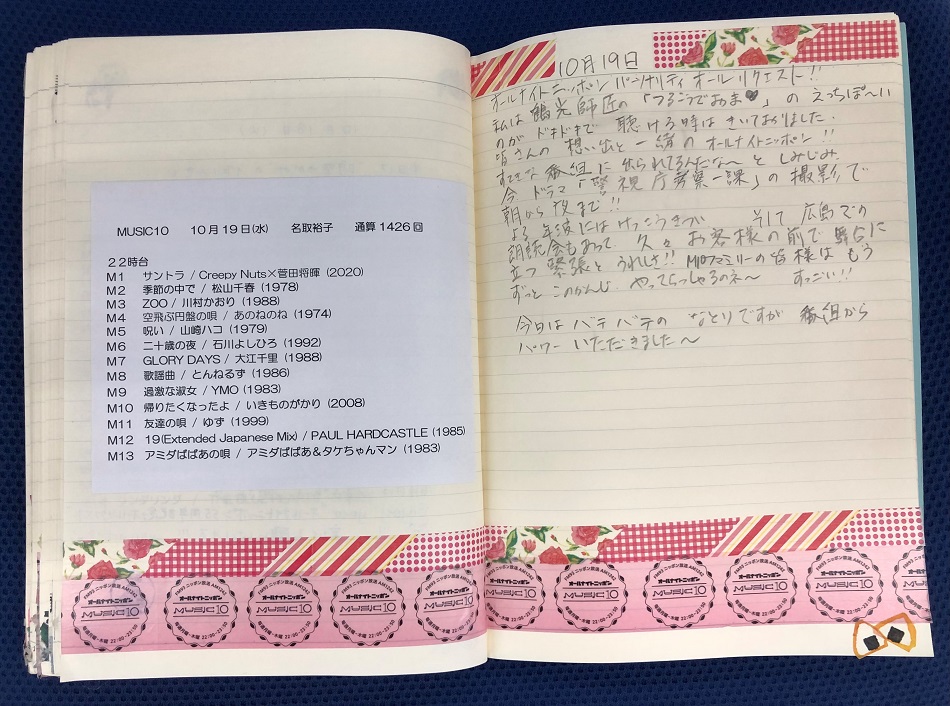 MUSIC10 10月19日(水) 名取裕子 通算1426回
22時台
M1 サントラ / Creepy Nuts×菅田将暉 (2020)
M2 季節の中で / 松山千春 (1978)
M3 ZOO / 川村かおり (1988)
M4 空飛ぶ円盤の唄 / あのねのね (1974)
M5 呪い / 山崎ハコ (1979)
M6 二十歳の夜 / 石川よしひろ (1992)
M7 GLORY DAYS / 大江千里 (1988)
M8 歌謡曲 / とんねるず (1986)
M9 過激な淑女 / YMO (1983)
M10 帰りたくなったよ / いきものがかり (2008)
M11 友達の唄 / ゆず (1999)
M12 19(Extended Japanese Mix) / PAUL HARDCASTLE (1985)
M13 アミダばばあの唄 / アミダばばあ&タケちゃんマン (1983)
10月19日
オールナイトニッポン パーソナリティ オールリクエスト!!
私は 鶴光師匠の「つるこうでおま♥」の えっちぽ〜い
のが ドキドキで 聴ける時は きいておりました.
皆さんの 想い出と 一緒の オールナイトニッポン!!
すてきな 番組に 出られてるんだな〜と しみじみ.
今 ドラマ「警視庁考案一課」の 撮影で
朝から 夜まで!!
よる年波には けっこうきつい そして 広島での
朗読会もあって 久々 お客様の前で 舞台に
立つ 緊張と うれしさ!! M10ファミリーの 皆様は もう
ずっと このかんじ やってらっしゃるのネ〜 すっごい!!
今日は バテバテの なとりですが 番組から
パワー いただきました〜
オールナイトニッポン
MUSIC10
オールナイトニッポン
MUSIC10
オールナイトニッポン
MUSIC10
オールナイトニッポン
MUSIC10
オールナイトニッポン
MUSIC10
オールナイトニッポン
MUSIC10
オールナイトニッポン
MUSIC10
オールナイトニッポン
MUSIC10